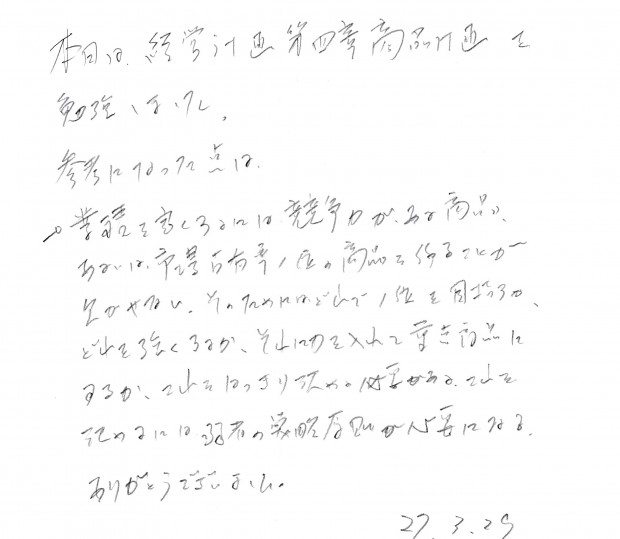 本日は、経営計画第四章商品計画を
勉強しました。
参考になった点は、
業績を良くするには競争力がある商品、
あるいは市場占有率1位の商品を作ることが
欠かせない。そのためにはどれで1位を目指すか、
どれを強くするか、それに力を入れて 商品に
するか、これをはっきり決める必要がある。これを
決めるには弱者の戦略原則が必要になる。
ありがとうございました。
27.3.29